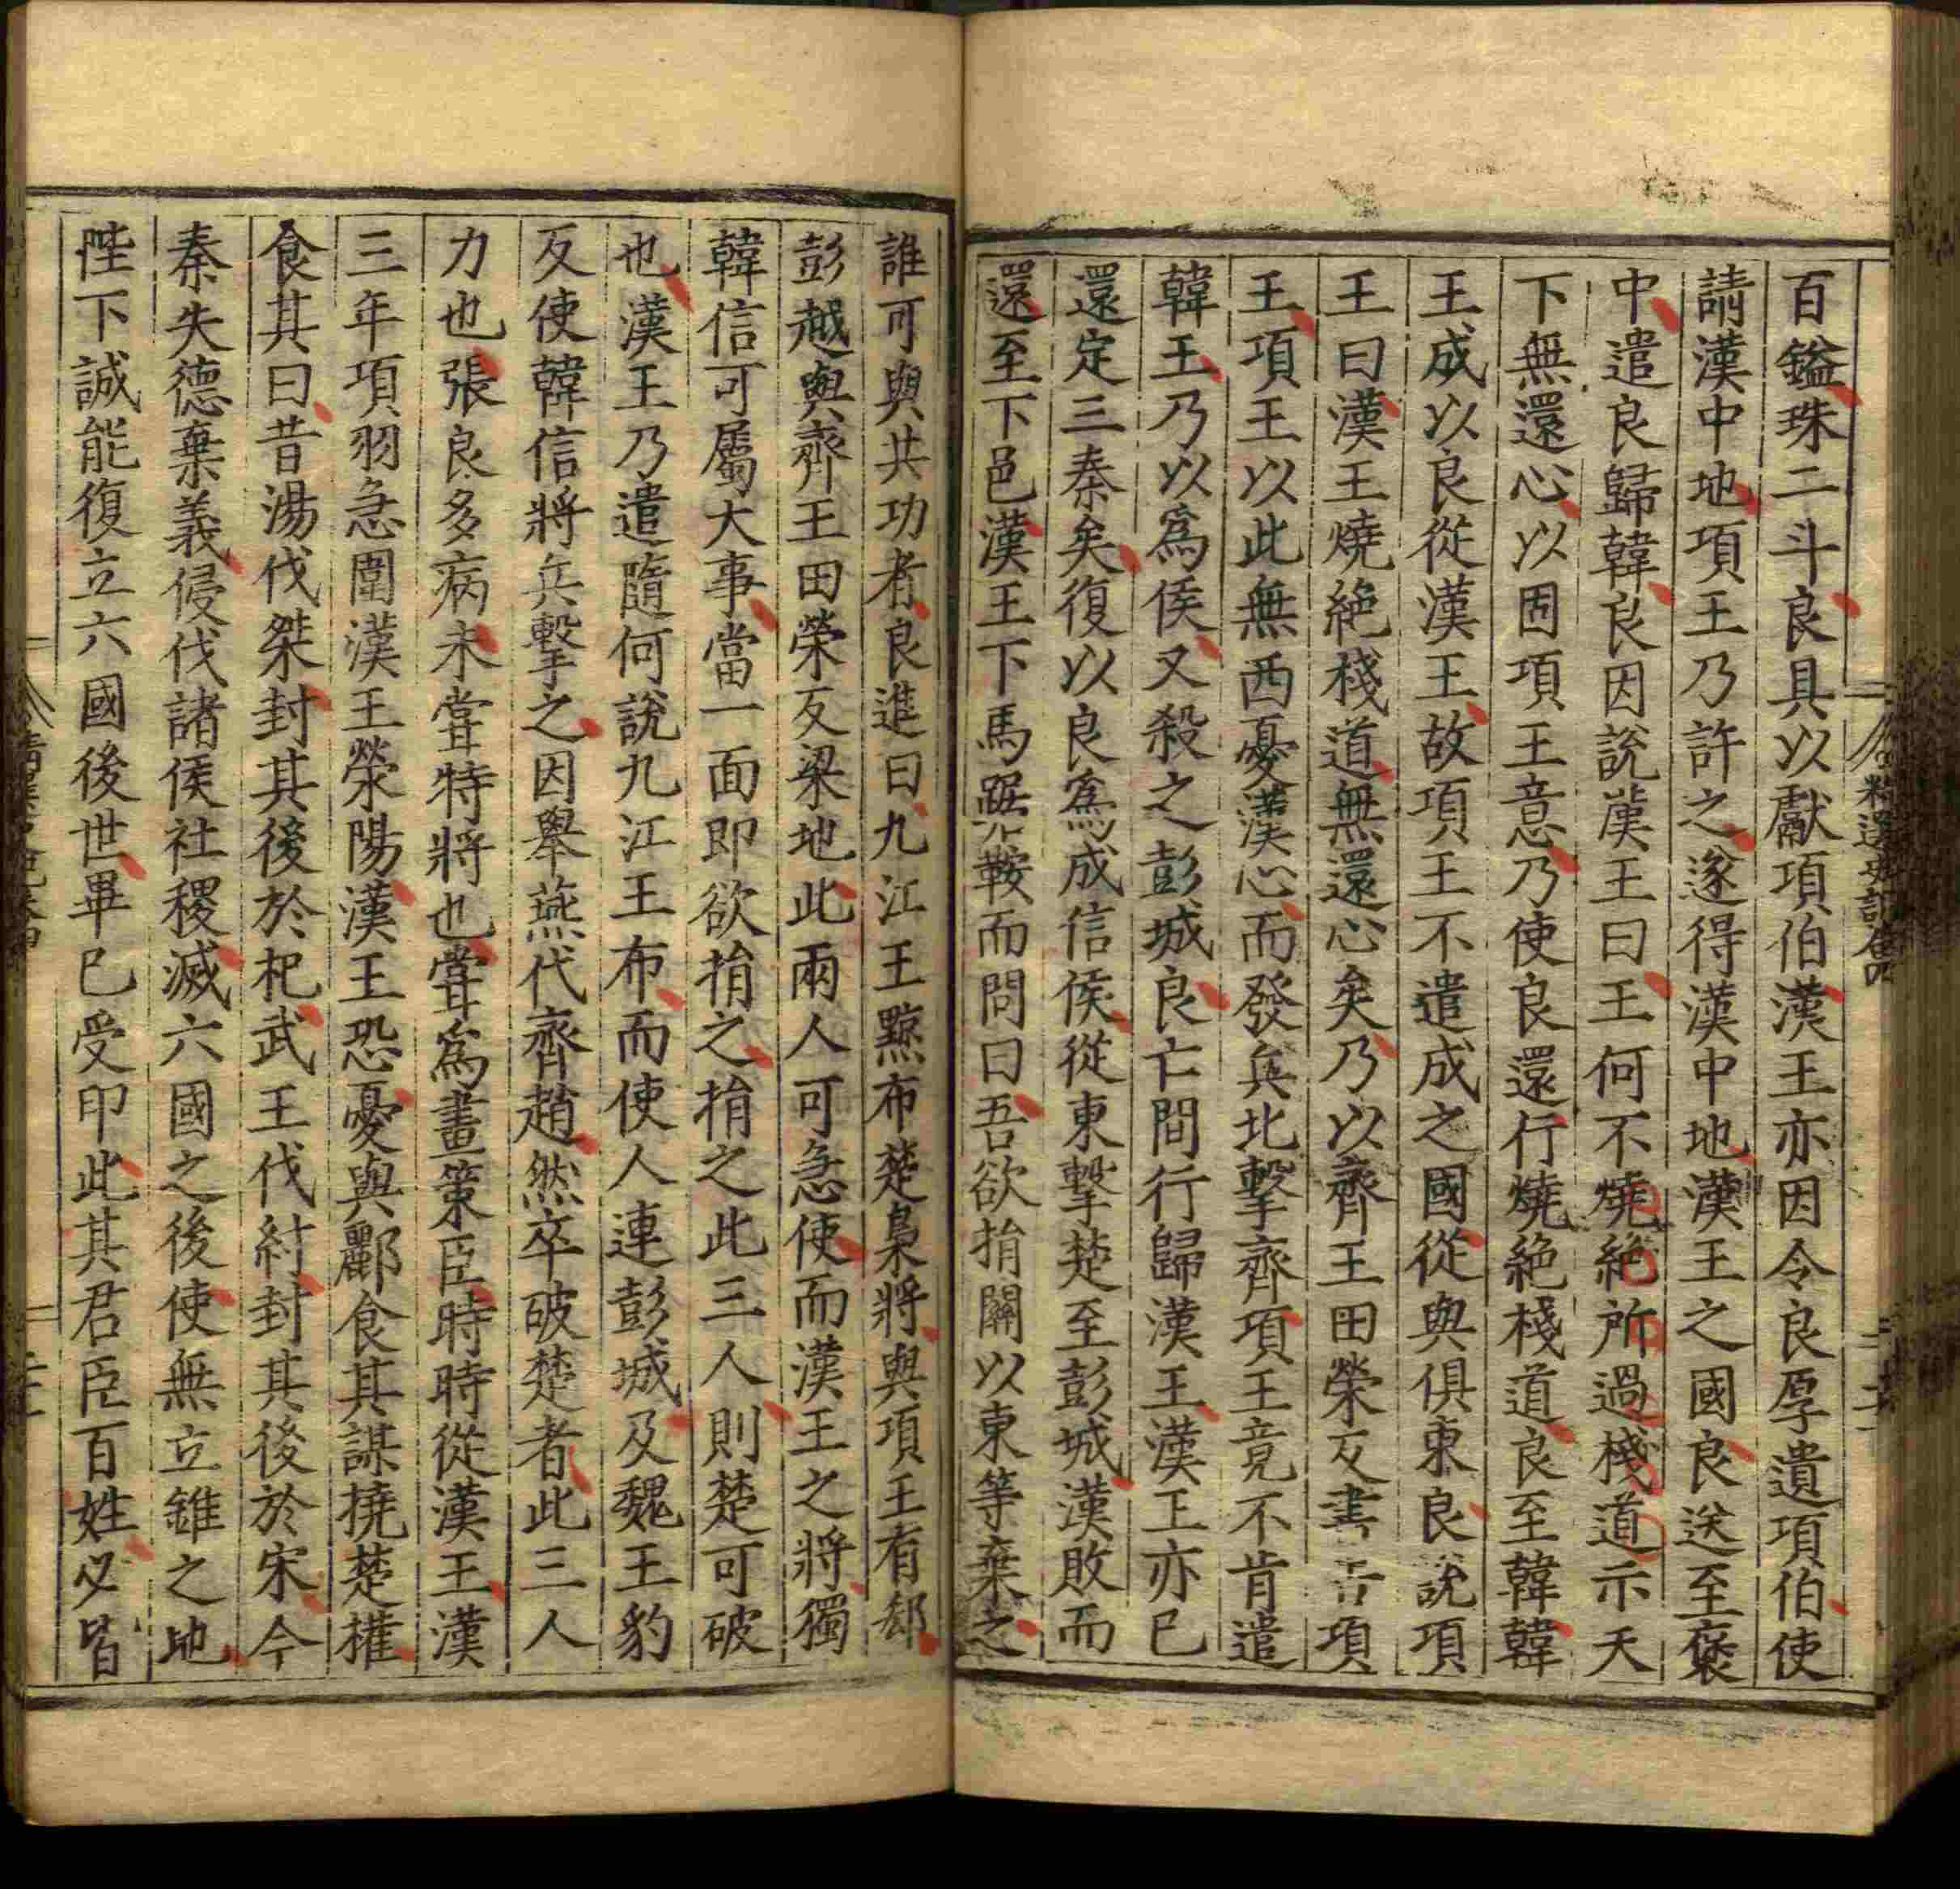 百鎰珠二斗良具以獻項伯漢王亦因令良厚遺項伯使
請漢中地項王乃許之遂得漢中地漢王之國良送至襃
中遣良歸韓良因說漢王曰王何不燒絶所過棧道示天
下無還心以固項王意乃使良還行燒絶棧道良至韓韓
王成以良從漢王故項王不遣成之國從與俱東良說項
王曰漢王燒絶棧道無還心矣乃以齊王田榮反書告項
王項王以此無西憂漢心而發兵北擊齊項王竟不肯遣
韓王乃以爲侯又殺之彭城良亡間行歸漢王漢王亦已
還定三秦矣復以良爲成信侯從東擊楚至彭城漢敗而
還至下邑漢王下馬踞鞍而問曰吾欲捐關以東等棄之
誰可與共功者良進曰九江王黥布楚梟將與項王有郄
彭越與齊王田榮反梁地此兩人可急使而漢王之將獨
韓信可屬大事當一面即欲捐之捐之此三人則楚可破
也漢王乃遣隨何說九江王布而使人連彭城及魏王豹
反使韓信將兵擊之因舉燕代齊趙然卒破楚者此三人
力也張良多病未甞特將也甞爲畫策臣時時從漢王漢
三年項羽急圍漢王滎陽漢王恐憂與酈食其謀撓楚權
食其曰昔湯伐桀封其後於杞武王伐紂封其後於宋今
秦失德棄義侵伐諸侯社稷滅六國之後使無立錐之地
陛下誠能復立六國後世畢已受印此其君臣百姓必皆